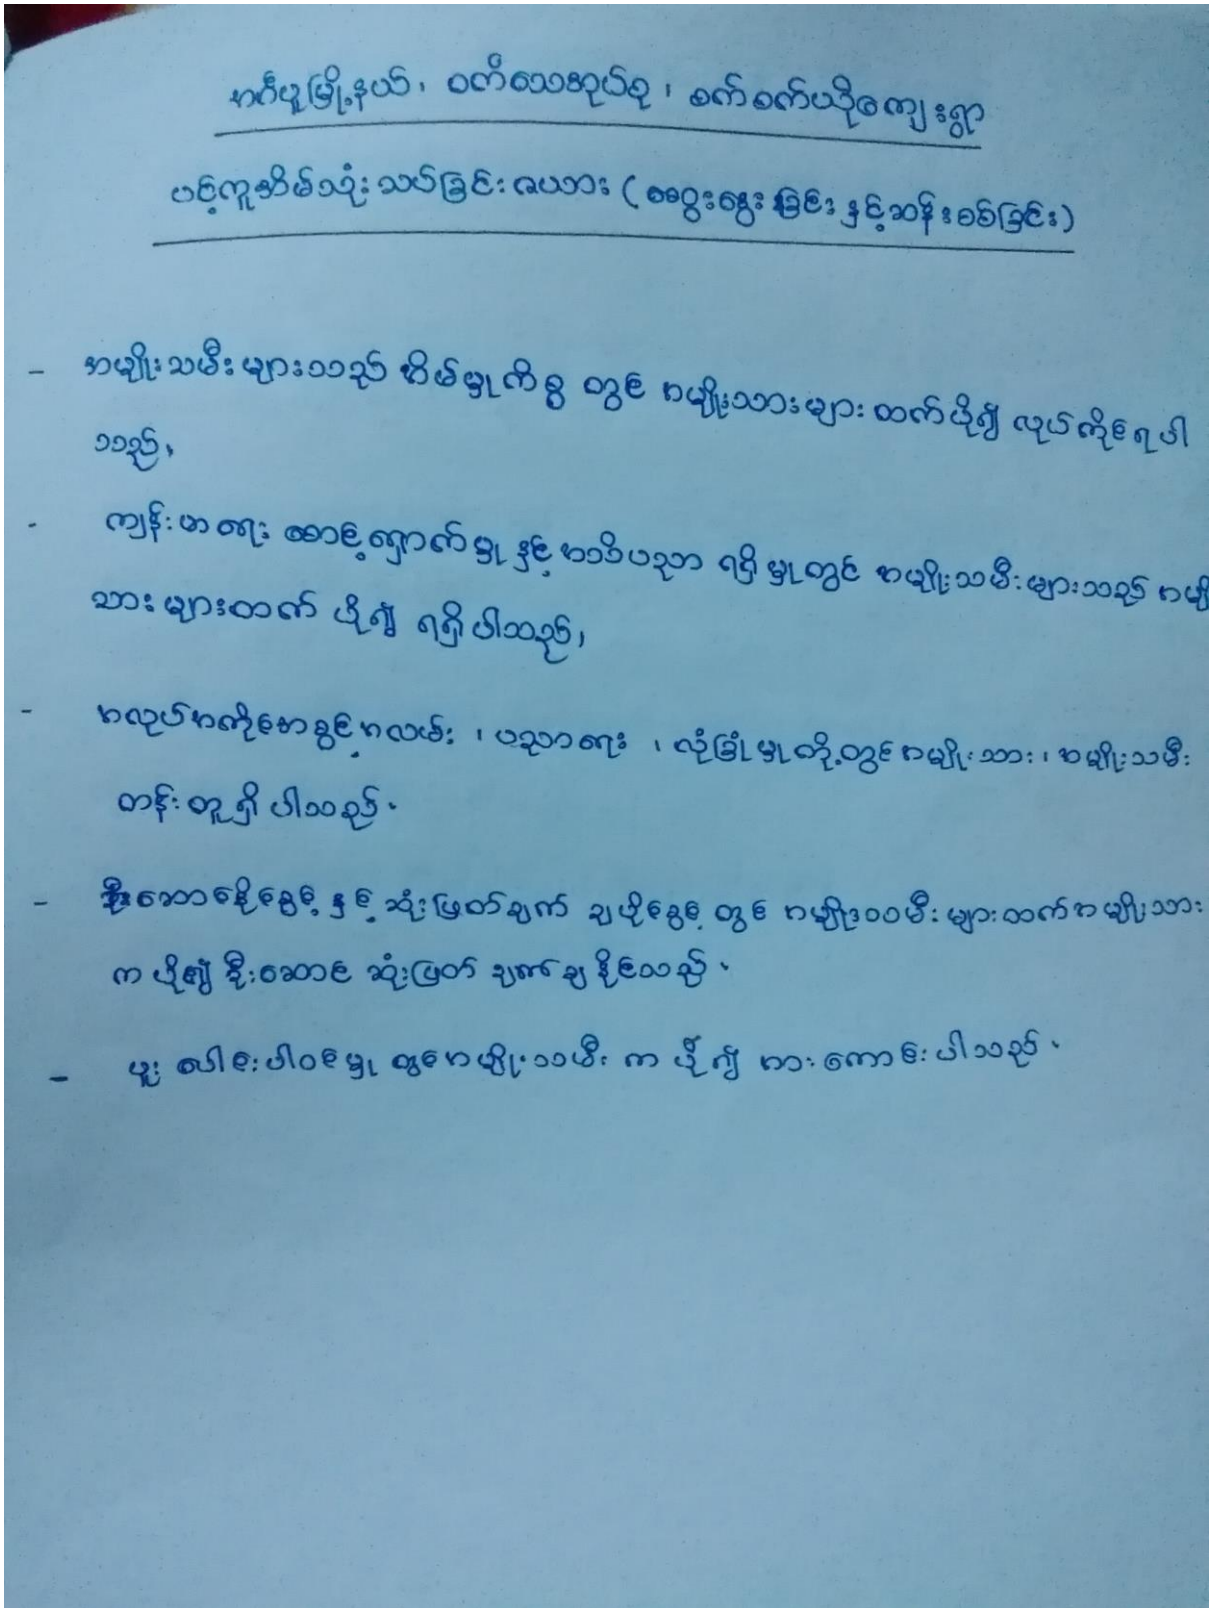 အင်္ဂပူမြို့နယ်၊ ဝက်သေအုပ်စု၊ စက်စက်ယိုကျေးရွာ
ပင့်ကူအိမ်သုံးသပ်ခြင်းဇယား (ဆွေးနွေးခြင်းနှင့်ဆန်းစစ်ခြင်း)
- အမျိုးသမီးများသည် အိမ်မှုကိစ္စ တွင် အမျိုးသားများထက်ပို၍ လုပ်ကိုင်ရပါ
သည်၊
- ကျန်းမာရေး စောင့်ရှောက်မှု နှင့် အသိပညာ ရရှိမှုတွင် အမျိုးသမီးများသည် အမျိုး
သားများထက် ပို၍ ရရှိပါသည်၊
- အလုပ်အကိုင်အခွင့်အလမ်း ၊ ပညာရေး ၊ လုံခြုံမှုတို့တွင်အမျိုးသား၊ အမျိုးသမီး
တန်းတူရှိပါသည်.
- ဦးဆောင်နိုင်ခွင့် နှင့် ဆုံးဖြတ်ချက် ချပိုင်ခွင့် တွင် အမျိုးသမီးများထက်အမျိုးသား
က ပို၍ ဦးဆောင် ဆုံးဖြတ် ချက်ချ နိုင်သည်.
- ပူး ပေါင်းပါဝင်မှု တွင်အမျိုးသမီး က ပို၍ အားကောင်းပါသည်.